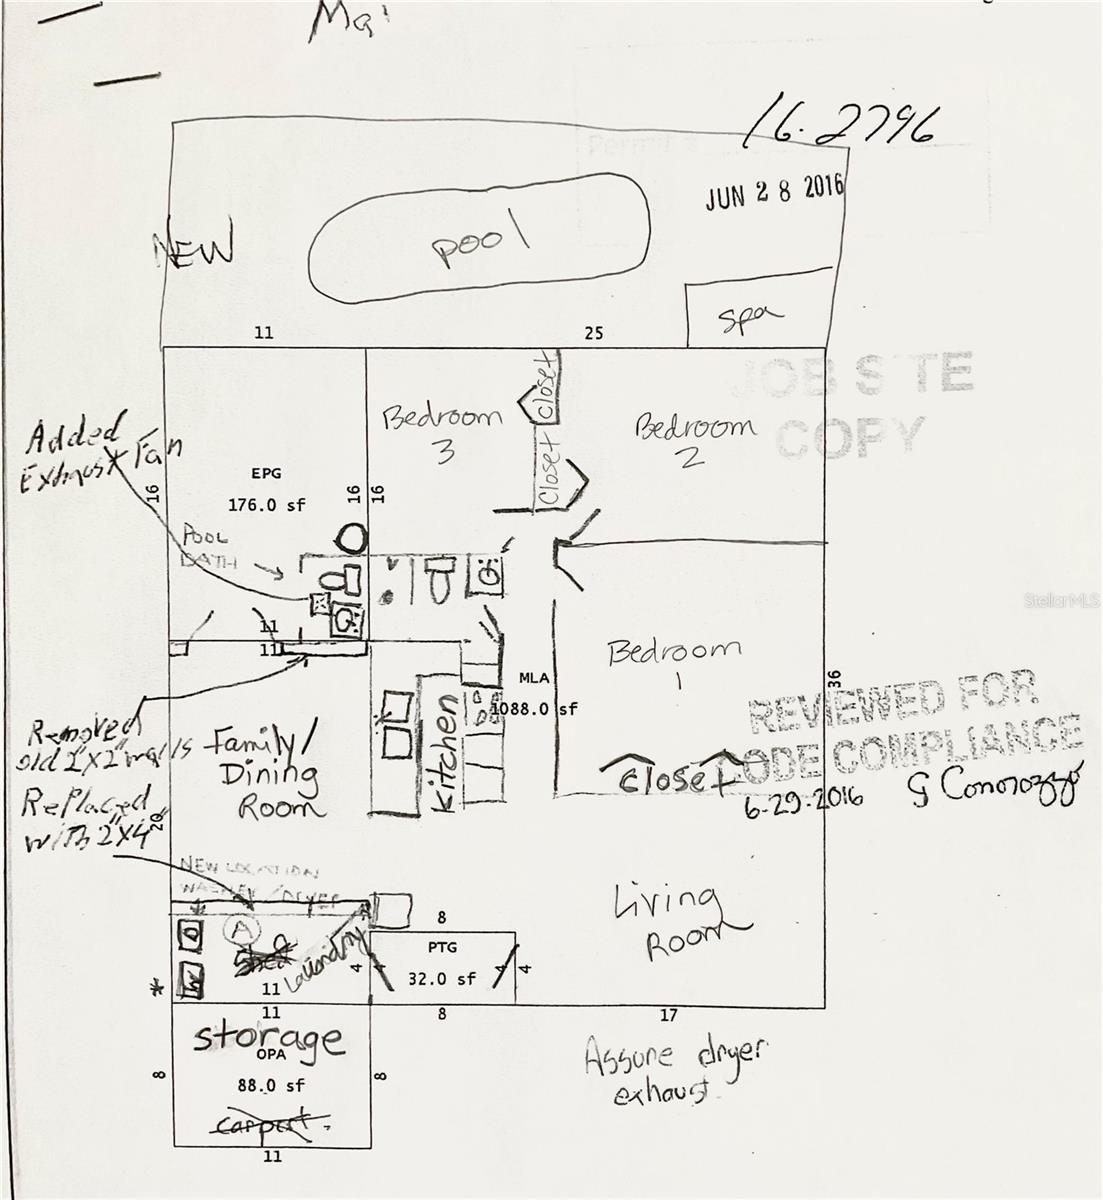 16-2796
JUN 28 2016
NEW
pool
spa
11
25
JOB SITE
COPY
Closet
Bedroom
3
Bedroom
2
Added
Exhaust Fan
Closet
EPG
176.0 sf
16
16
16
POOL
BATH
11
11
Bedroom
1
MLA
1088.0 sf
36
StellarMLS
REVIEWED FOR
CODE COMPLIANCE
6-29-2016
Removed
old 2"x2" walls
Replaced
with 2"x4"
20
Family/
Dining
Room
Kitchen
Closet
NEW LOCATION
WASHER/DRYER
A
D
W
Laundry
Living
Room
8
PTG
32.0 sf
4
4
4
4
11
11
8
17
storage
OPA
88.0 sf
8
8
carport
11
Assure dryer
exhaust